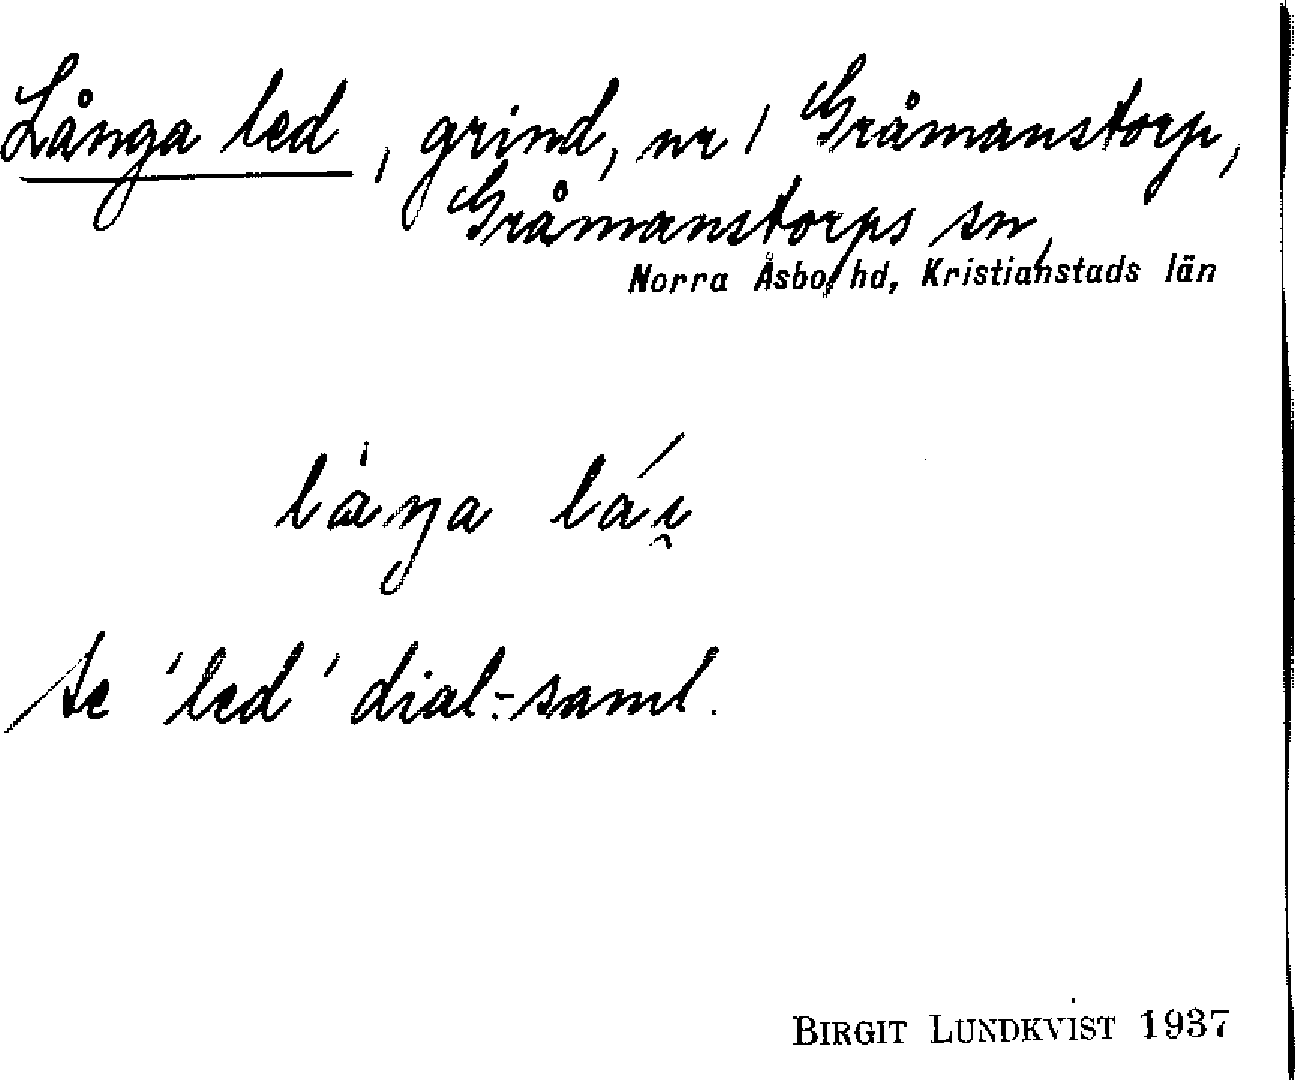 Långa led, grind, nr 1 Gråmanstorp,
Gråmanstorps sn,
Norra Åsbo hd, Kristianstads län
làŋa lái̯
Se 'led' dial.-saml.
BIRGIT LUNDKVIST 1937